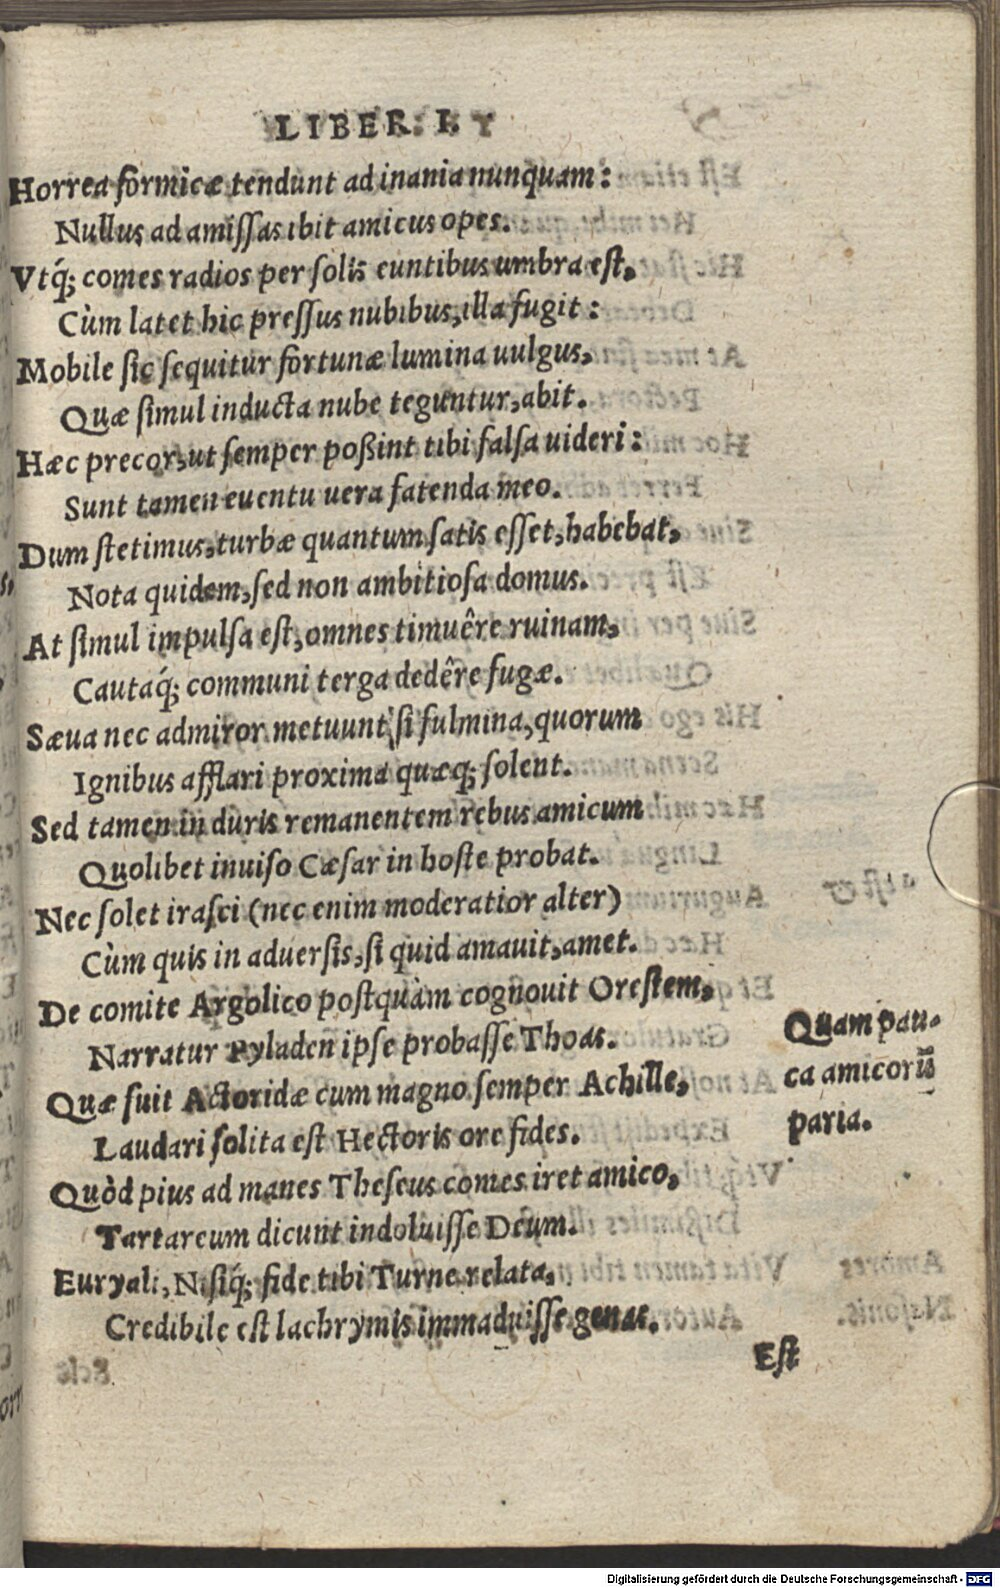 LIBER. I.
Horrea formicæ tendunt ad inania nunquam:
Nullus ad amiſſas ibit amicus opes.
Vtq́; comes radios per ſolis euntibus umbra eſt,
Cùm latet hic preſſus nubibus, illa fugit:
Mobile ſic ſequitur fortunæ lumina uulgus,
Quæ ſimul inducta nube teguntur, abit.
Hæc precor, ut ſemper poßint tibi falſa uideri:
Sunt tamen euentu uera fatenda meo.
Dum ſtetimus, turbæ quantum ſatis eſſet, habebat,
Nota quidem, ſed non ambitioſa domus.
At ſimul impulſa eſt, omnes timuêre ruinam,
Cautaq́; communi terga dedêre fugæ.
Sæua nec admiror metuunt ſi fulmina, quorum
Ignibus afflari proxima quæq; ſolent.
Sed tamen in duris remanentem rebus amicum
Quolibet inuiſo Cæſar in hoſte probat.
Nec ſolet iraſci (nec enim moderatior alter)
Cùm quis in aduerſis, ſi quid amauit, amet.
De comite Argolico poſtquàm cognouit Oreſtem,
Narratur Pyladen ipſe probaſſe Thoas.
Quæ fuit Actoridæ cum magno ſemper Achille,
Laudari ſolita eſt Hectoris ore fides.
Quòd pius ad manes Theſeus comes iret amico,
Tartareum dicunt indoluiſſe Deum.
Euryali, Niſiq́; fide tibi Turne relata,
Credibile eſt lachrymis immaduiſſe genas.
Quam pau-
ca amicorũ
paria.
Eſt
Digitalisierung gefördert durch die Deutsche Forschungsgemeinschaft - DFG